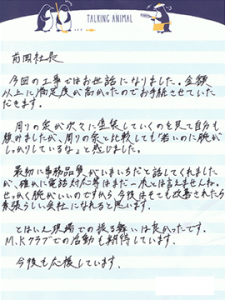 TALKING ANIMAL
前田社長
今回の工事ではお世話になりました。金額
以上に満足度が高かったのでお手紙させていた
だきます。
周りの家が次々に塗装していくのを見て自分も
頼みましたが、周りの家と比較しても「若いのに腕が
しっかりしているな」と感じました。
最初に事務品質がいまいちだと話してくれました
が、確かに電話対応等はまだ一流とは言えませんね。
せっかく腕がいいのですから今後はそこも改善されたら
素晴らしい会社になれると思います。
とはいえ現場での振る舞いは良かったです。
M.Kクラブでの活動も期待しています。
今後も応援しています。